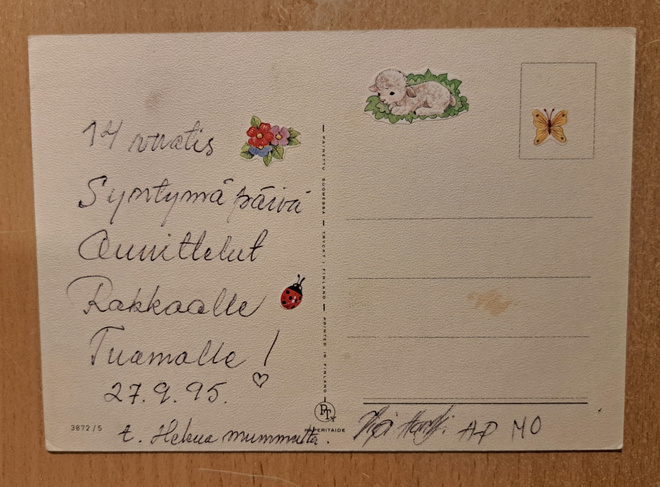 14 vuotis
Syntymäpäivä
Onnittelut
Rakkaalle
Tuamalle!
27.9.95.
t. Helena mummulta.
3872/5
PAINETTU SUOMESSA — TRYCKT I FINLAND — PRINTED IN FINLAND
PT
PAPERITAIDE
AP MO